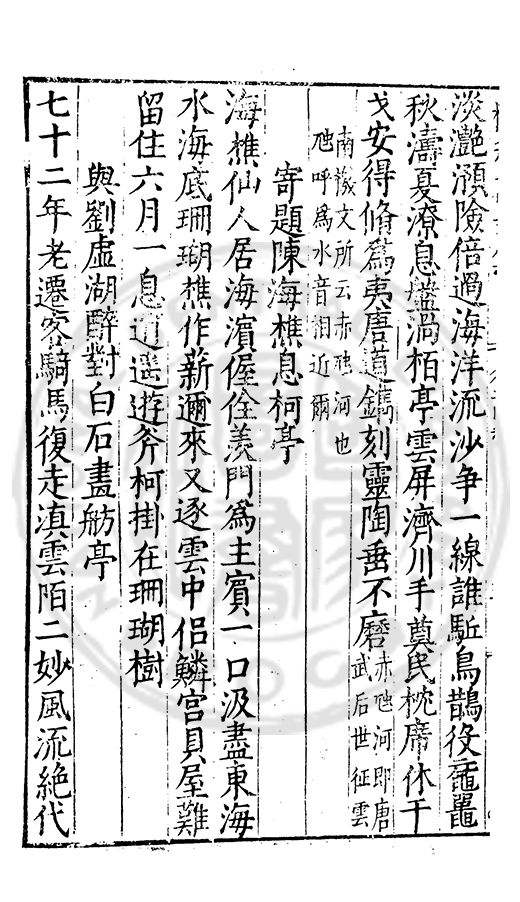 淡灧澦險倍過海洋流沙争一線誰駈鳥鵲役黿鼉
秋濤夏潦息盤渦栢亭雲屏濟川手奠民枕席休干
戈安得脩爲夷唐道鐫刻靈陶垂不磨赤虺河即唐
武后世征雲
南檄文所云赤虺河也
虺呼爲水音相近爾
寄題陳海樵息柯亭
海樵仙人居海濵偓佺羨門爲主賓一口汲盡東海
水海底珊瑚樵作薪邇來又逐雲中侣鱗宫貝屋難
留住六月一息逍遥遊斧柯掛在珊瑚樹
與劉虛湖醉對白石畫舫亭
七十二年老遷客騎馬復走滇雲陌二妙風流絶代